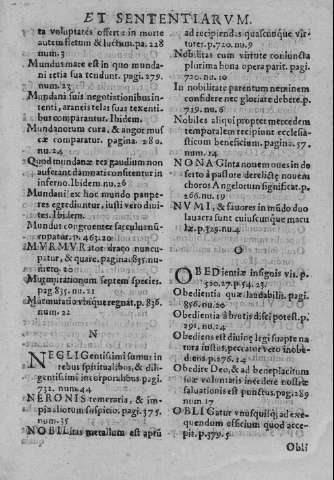 ET SENTENTIARVM.
ta voluptatés offert & in morte
autem fletum & luctum. pa. 228
num. 3
Mundus mare est in quo munda-
ni retia sua tendunt. pagi. 279.
num. 23
Mundani suis negotiationibus in-
tenti, araneis telas suas texenti-
bus comparantur. Ibidem.
Mundanorum cura, & angor mus
cæ comparatur. pagina. 280.
nu. 24
Quod mundanæ res gaudium non
auferant damnatis constitentur in
inferno. Ibidem. nu. 26
Mundani ex hoc mundo paupe-
res egrediuntur, iusti vero diui-
tes. Ibidem.
Mundus congruenter sacculum nū
cupatur. p. 463. 20
MVRMVRator draco nuncu-
patur, & quare. pagina. 835. nu-
mero. 20
Murmurationum septem species.
pag 835. nu. 21
Murmuratio vbique regnat. p. 836.
num. 22
N
NEGLIGentissimi sumus in
rebus spiritualibus, & dili-
gentissimi in corporalibus pagi.
732. num. 44
NERONIS temeratia, & im-
pia aliorum suspicio. pag. 375.
num. 35
NOBILitas metallum est aptū
ad recipiendas quascunque vir-
tutes. p. 720. nu. 9
Nobilitas cum virtute coniuncta
plurima bona opera parit. pagi.
720. nu. 10
In nobilitate parentum neminem
confidere nec gloriare debere. p.
719. nu. 6
Nobiles aliqui propter mercedem
temporalem recipiunt ecclesia-
sticum beneficium. pagina. 57.
num. 14
NONAGinta nouem oues in de
serto à pastore derelictę nouem
choros Angelorum significat. p.
266. nu. 19
NVMI, & fauores in mūdo duo
lauacra sunt cuiuscunque macu
læ. p. 329. nu. 4
O
OBEDientiæ insignis vis. p.
520. 27. p. 54. 23.
Obedientia quæ laudabilis. pagi.
856. nu. 20
Obedientia à brutis disci potest. p.
291. nu. 24
Obediens est diuinę legi suapte na
tura iustus, peccator vero inobe-
diens. p. 276. 14
Obedite Deo, & ad beneplacitum
suæ voluntatis incedere nostræ
salutationis est punctus. pag. 289
num 17
OBLIGatur vnusquisq; ad exe-
quendum officium quod acce-
pit. p. 379. 5
Obli